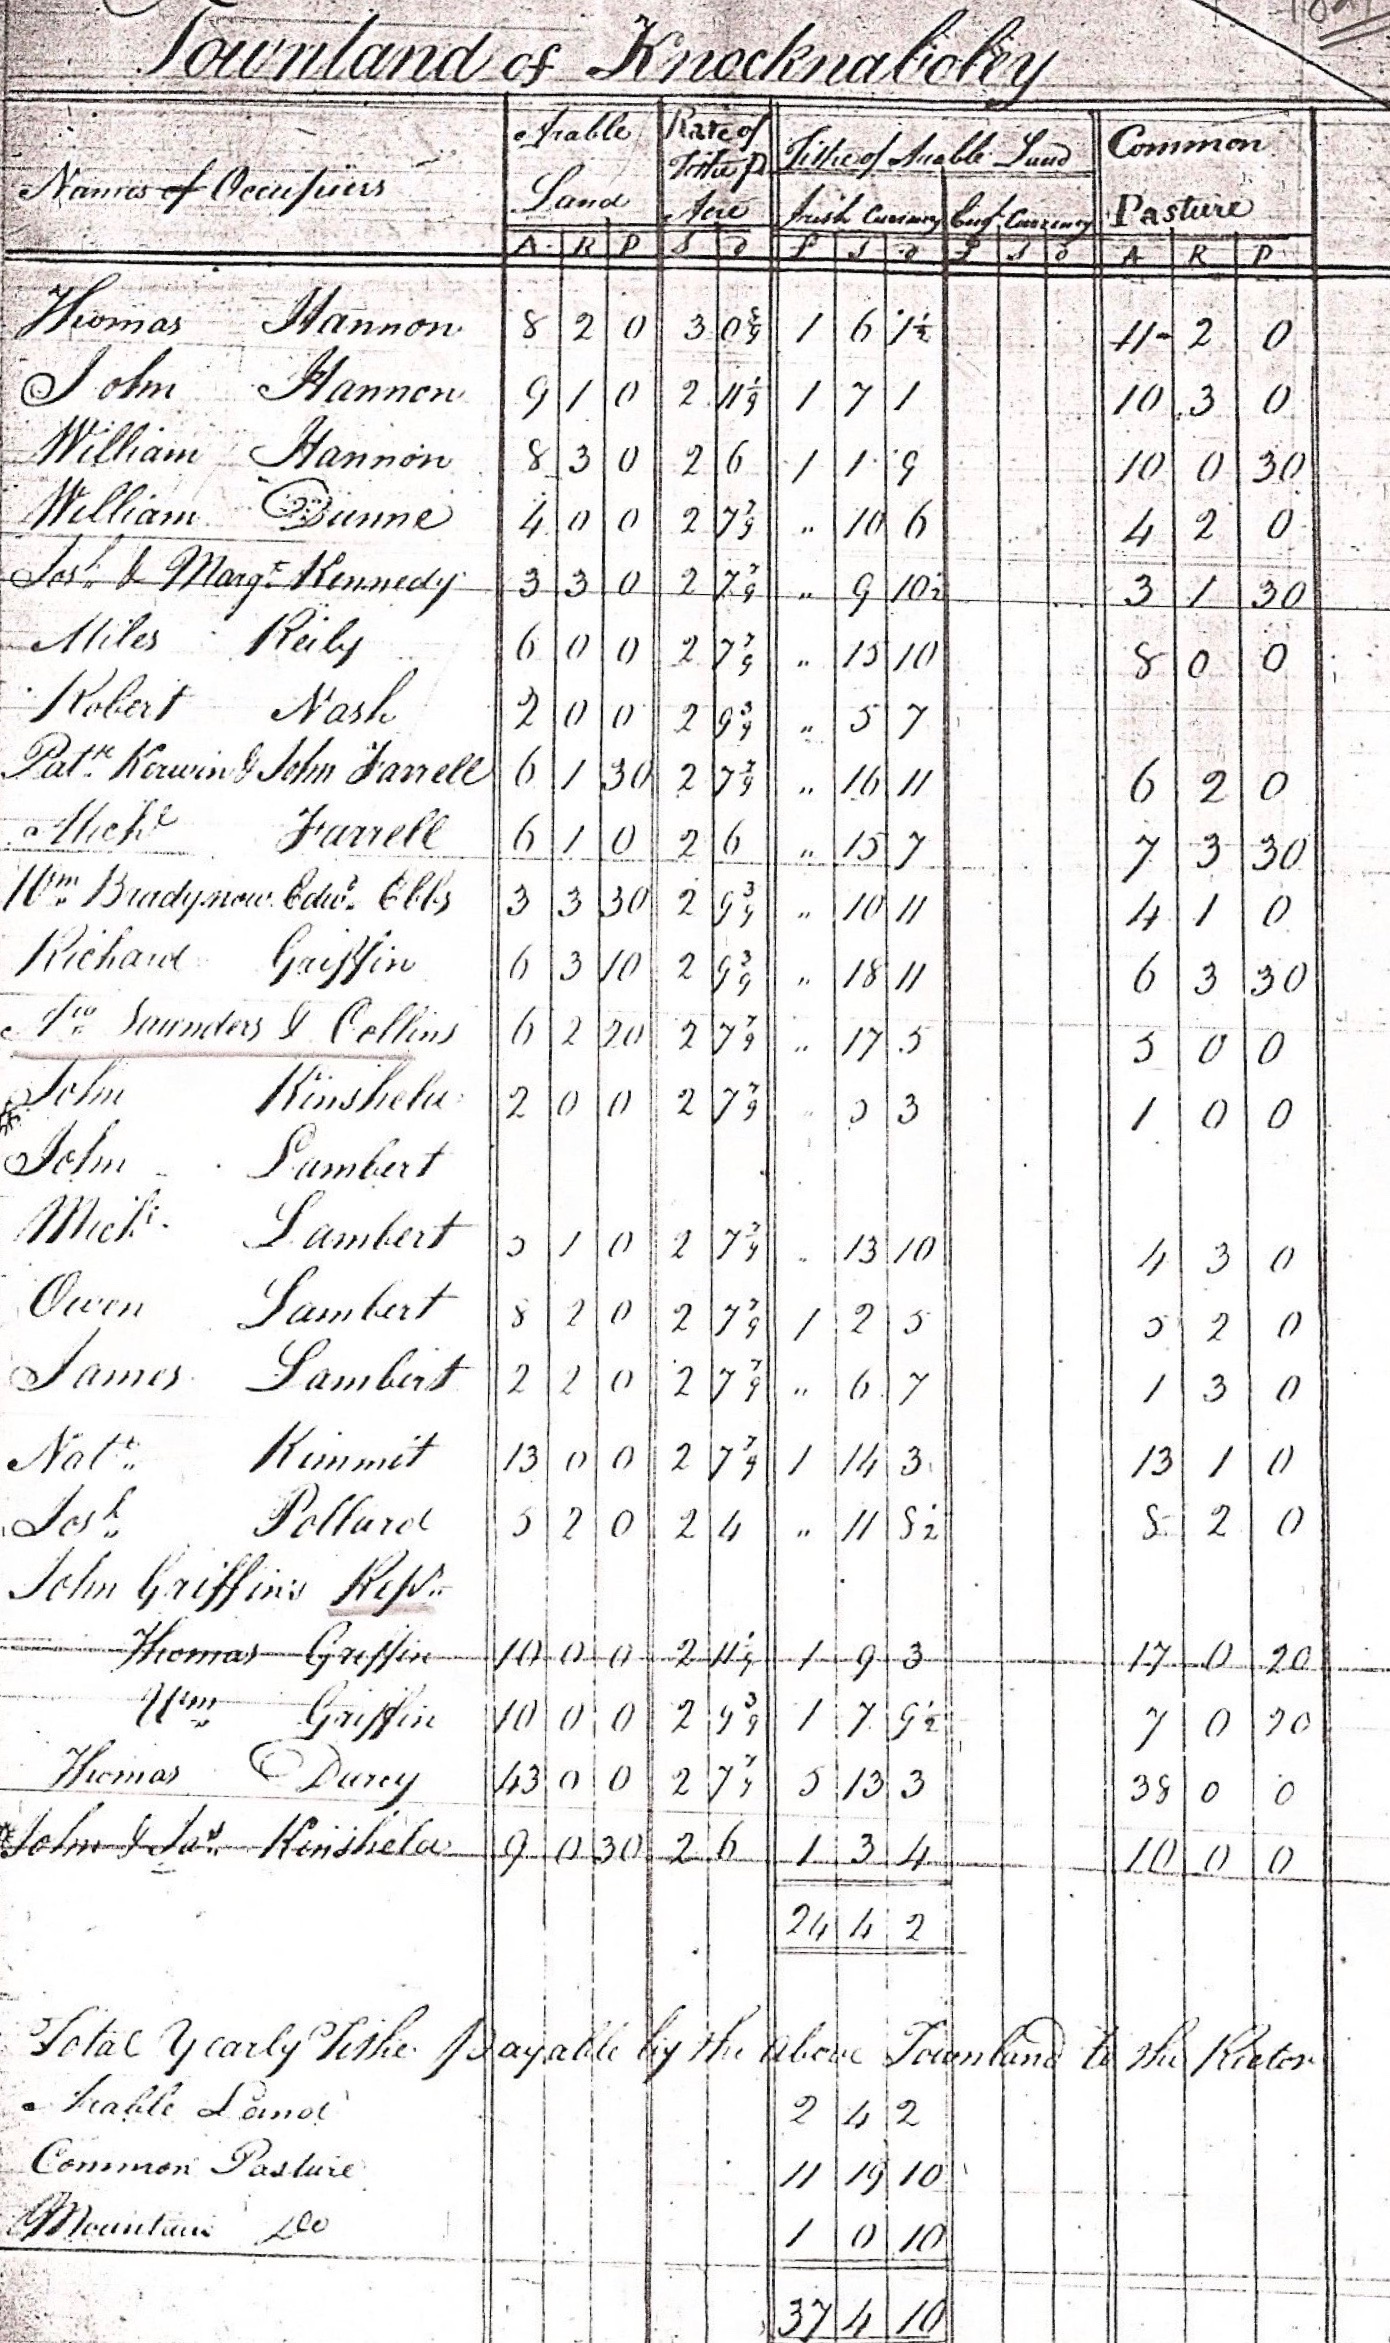 Townland of Knocknaboley
Names of Occupiers | Arable Land | Rate of Tithe p Acre | Tithe of Arable Land | Common Pasture
Irish Currency | Engh. Currency
A R P | S D | £ S D | £ S D | A R P
Thomas Hannon 8 2 0 3 0 8/9 1 6 1½ 11 2 0
John Hannon 9 1 0 2 11 1/9 1 7 1 10 3 0
William Hannon 8 3 0 2 6 1 1 9 10 0 30
William Dunne 4 0 0 2 7 7/9 " 10 6 4 2 0
Josh. & Margt. Kennedy 3 3 0 2 7 7/9 " 9 10½ 3 1 30
Miles Reily 6 0 0 2 7 7/9 " 15 10 8 0 0
Robert Nash 2 0 0 2 9 3/9 " 5 7
Patk. Kerwin & John Farrell 6 1 30 2 7 7/9 " 16 11 6 2 0
Michl. Farrell 6 1 0 2 6 " 15 7 7 3 30
Wm. Brady now Edwd. Ebbs 3 3 30 2 9 3/9 " 10 11 4 1 0
Richard Griffin 6 3 10 2 9 3/9 " 18 11 6 3 30
Saunders & Collins 6 2 20 2 7 7/9 " 17 5 5 0 0
John Kinshela 2 0 0 2 7 7/9 " 5 3 1 0 0
John Lambert
Michl. Lambert 5 1 0 2 7 7/9 " 13 10 4 3 0
Owen Lambert 8 2 0 2 7 7/9 1 2 5 5 2 0
James Lambert 2 2 0 2 7 7/9 " 6 7 1 3 0
Natt. Kimmit 13 0 0 2 7 7/9 1 14 3 13 1 0
Josh. Pollard 5 2 0 2 4 " 11 8½ 8 2 0
John Griffins Reps.
Thomas Griffin 10 0 0 2 11 1/9 1 9 3 17 0 20
Wm. Griffin 10 0 0 2 9 3/9 1 7 9½ 7 0 20
Thomas Darcy 43 0 0 2 7 7/9 5 13 3 38 0 0
John & Jas. Kinshela 9 0 30 2 6 1 3 4 10 0 0
24 4 2
Total Yearly Tithe payable by the above Townland to the Rector
Arable Land 2 4 2
Common Pasture 11 19 10
Mountain Do 1 0 10
37 4 10